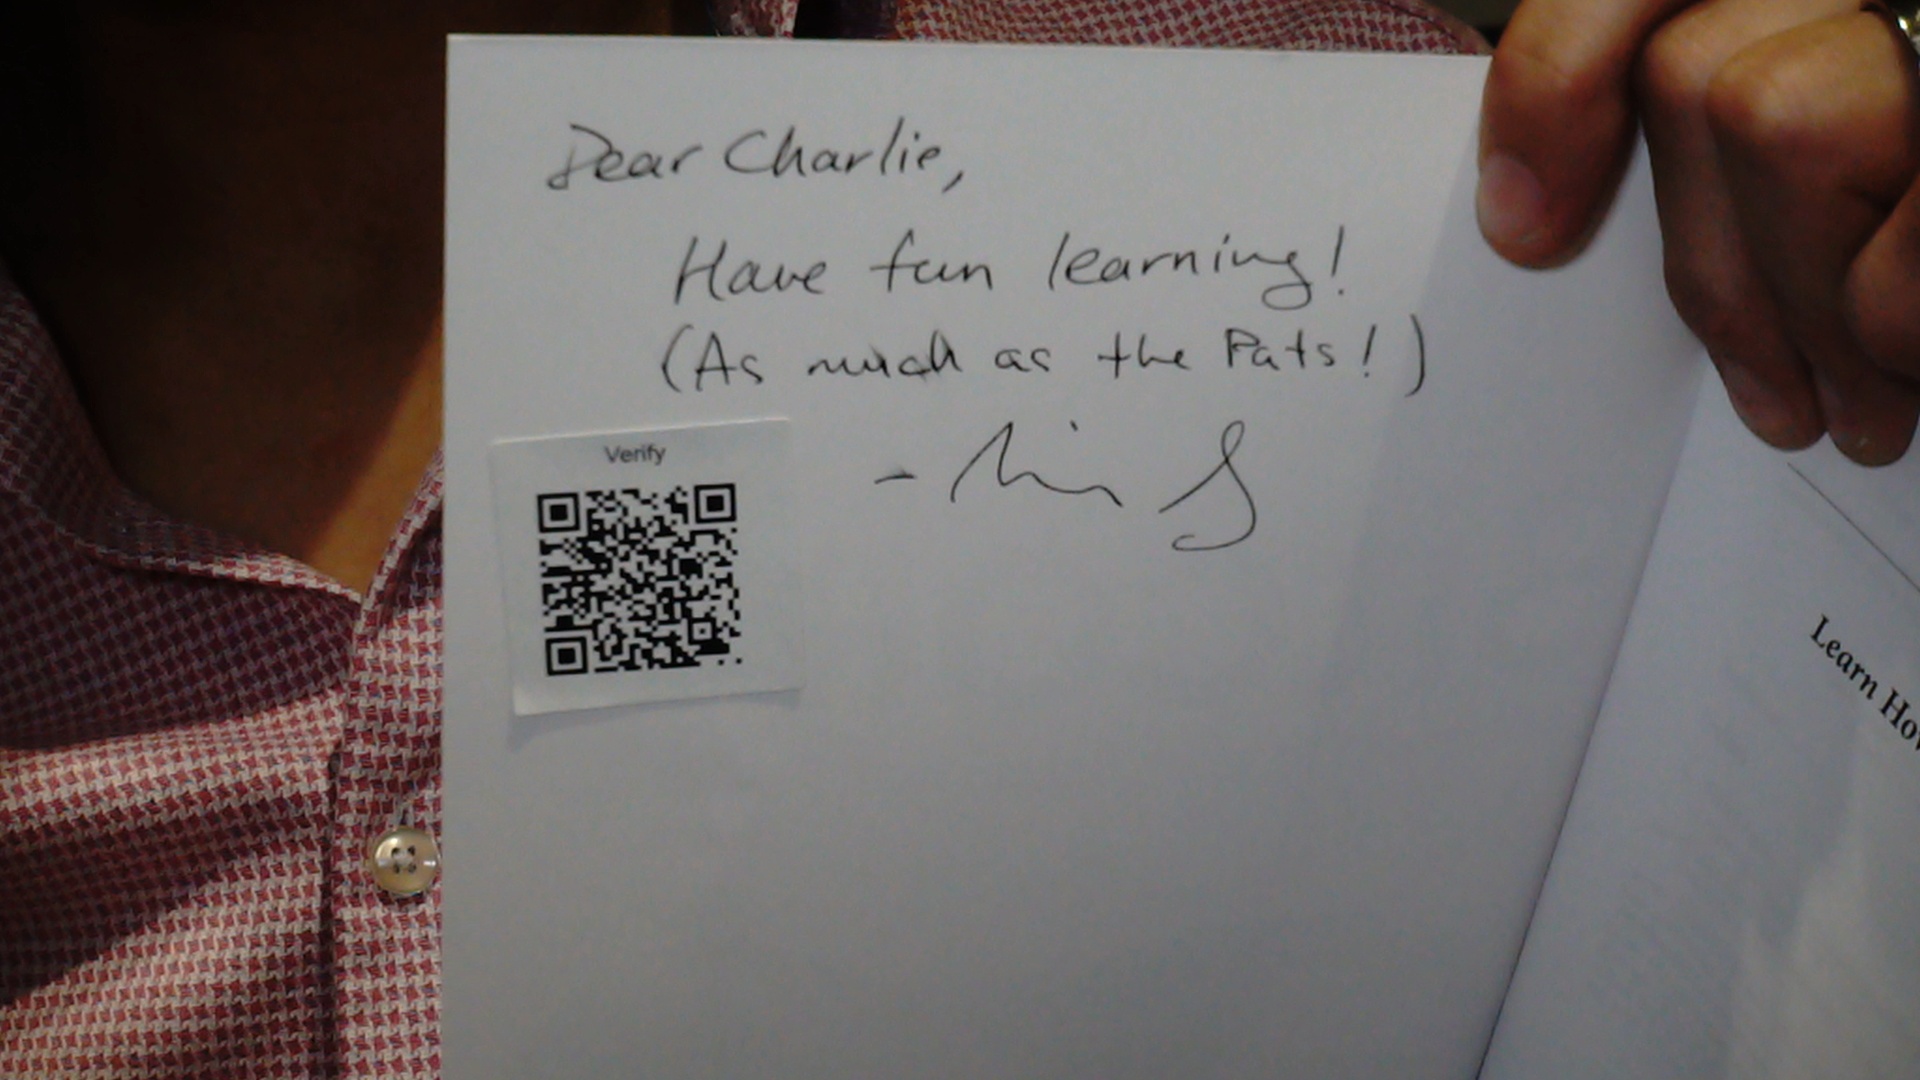 Dear Charlie,
Have fun learning!
(As much as the Pats!)
Verify
Learn How